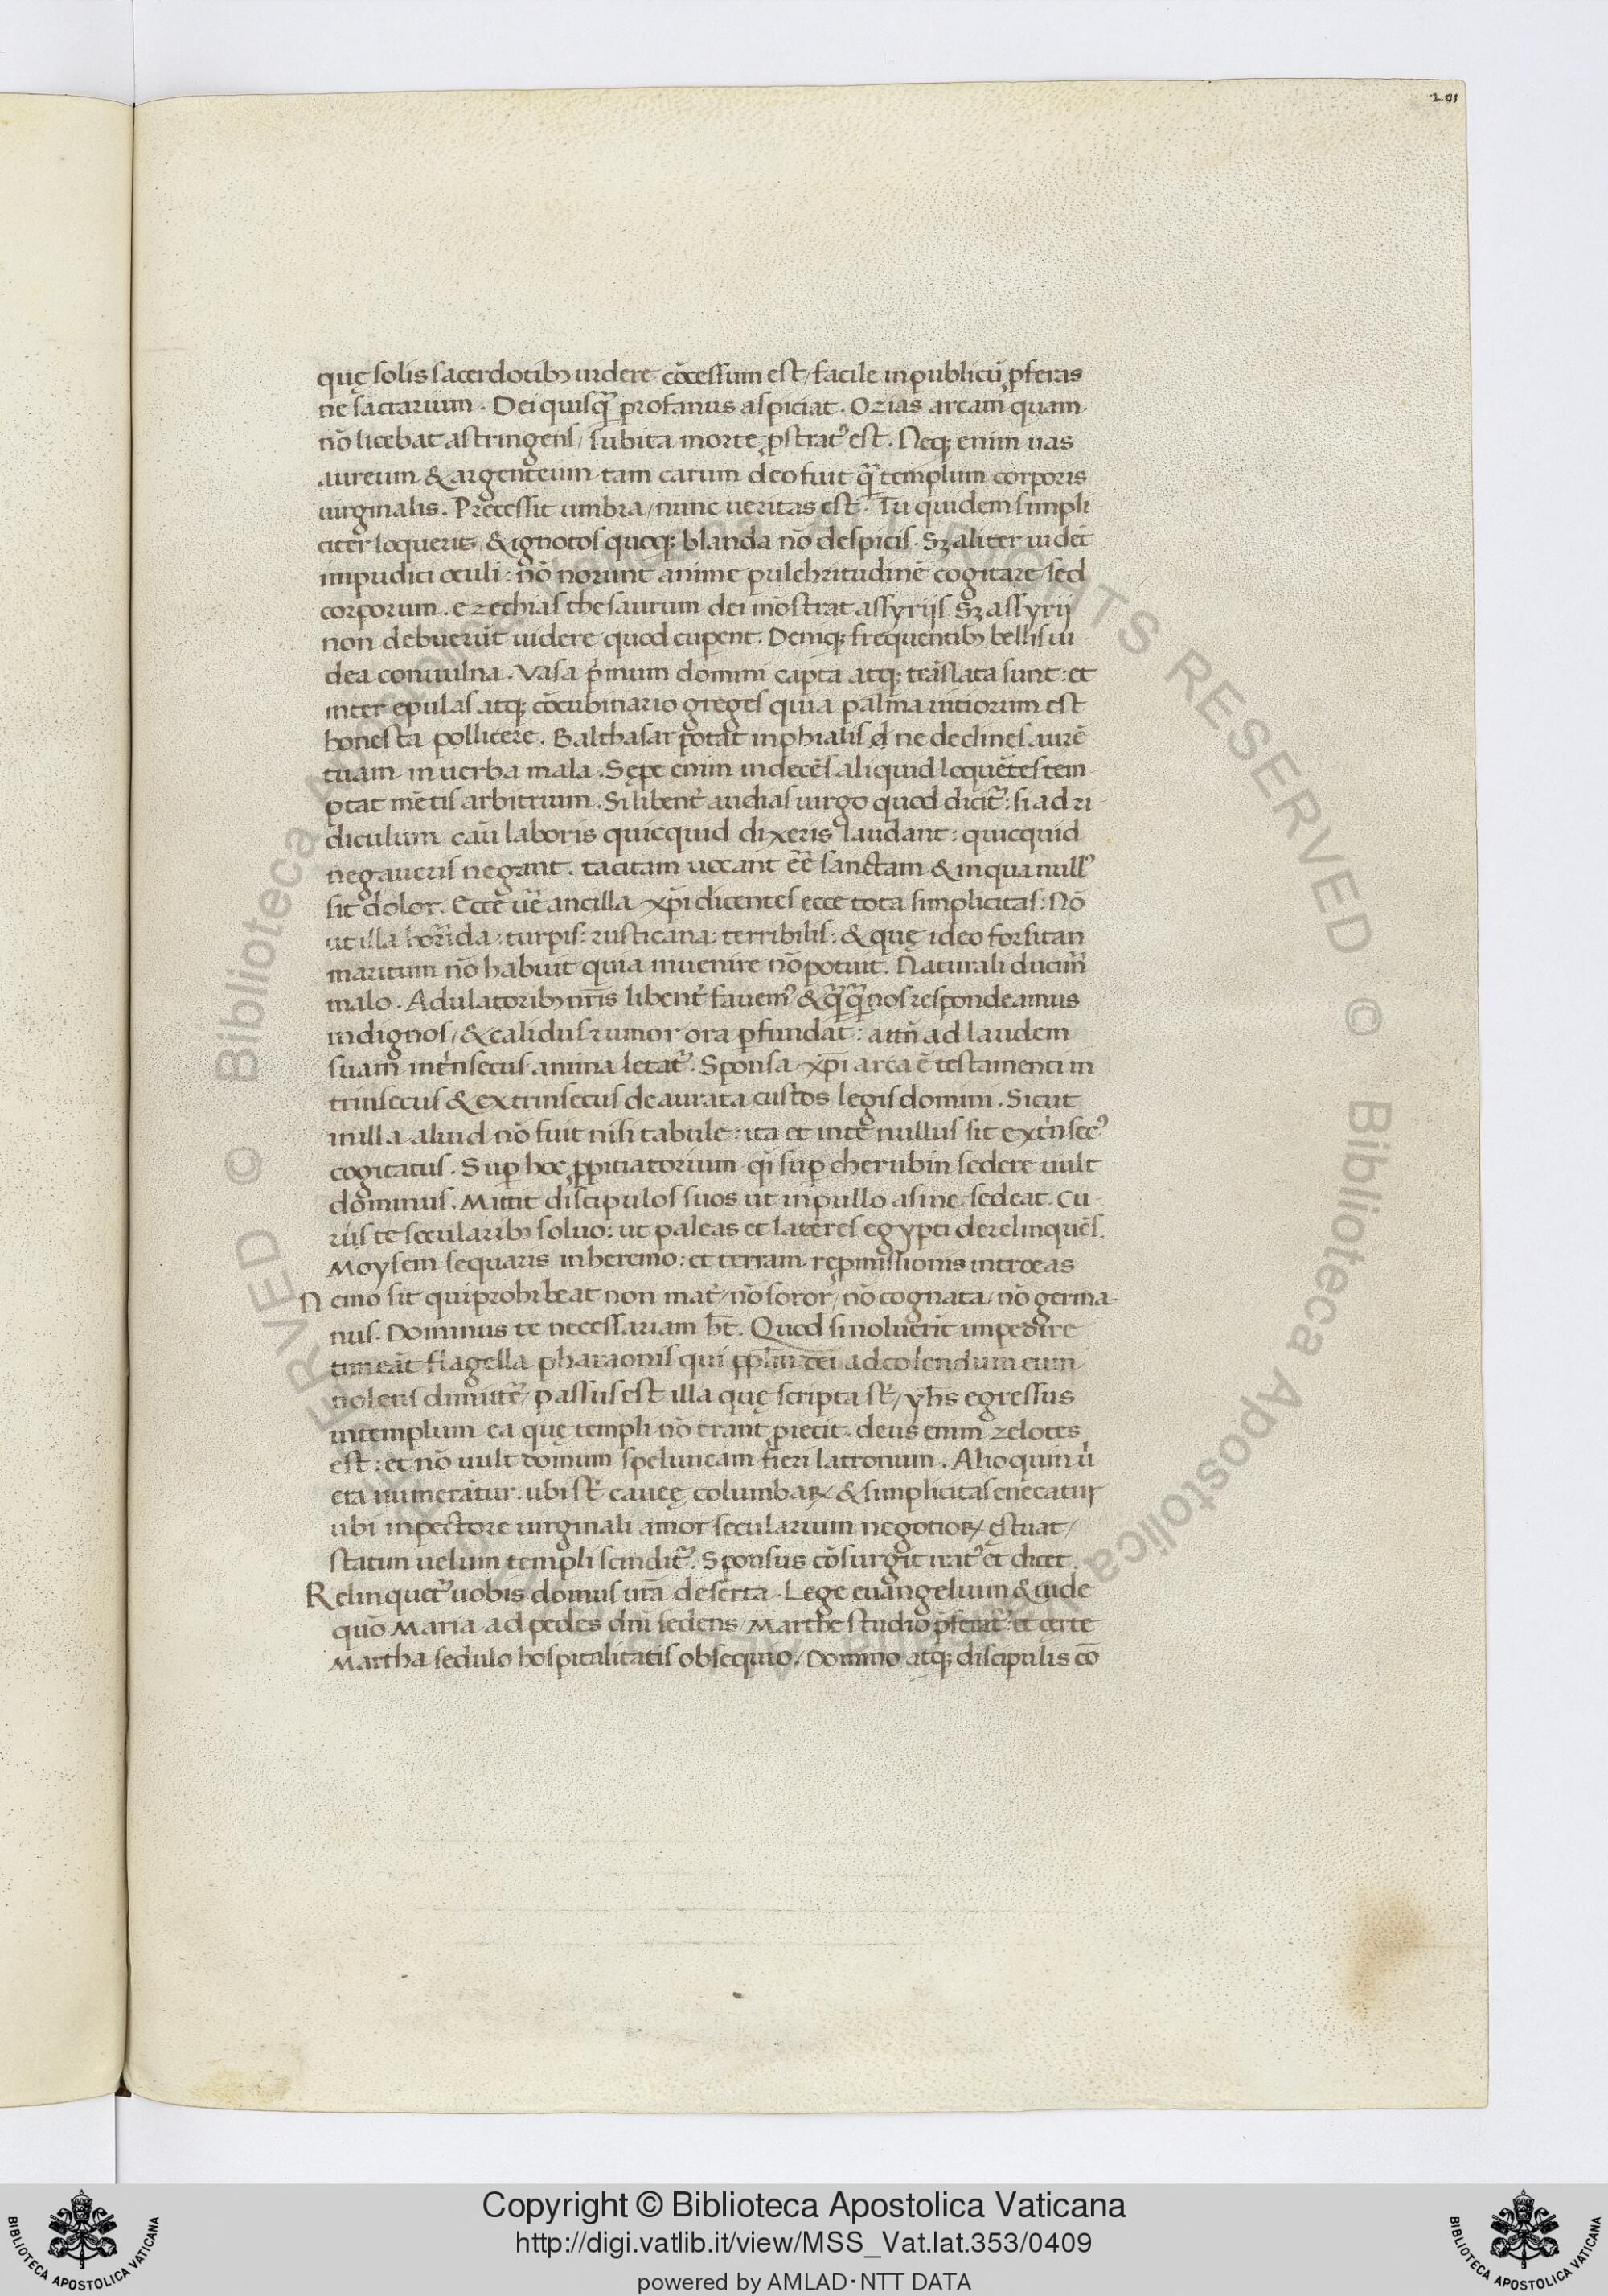 201
quę solis sacerdotibꝫ uidere cōcessum est / facile in publicū ꝓferas
ne sacrarium . Dei quisq̄ profanus aspiciat . Ozias arcam quam
nō licebat astringens / subita morte ꝓstratꝰ est . Neqꝫ enim uas
aureum & argenteum tam carum deo fuit q̄ templum corporis
uirginalis . Precessit umbra / nunc ueritas est . Tu quidem simpli
citer loqueris & ignotos quoqꝫ blanda nō despicis . Sꝫ aliter uidēt
impudici oculi : nō norunt anime pulchritudinē cogitare / sed
corporum . ezechias thesaurum dei mōstrat assyrijs Sꝫ assyrij
non debuerūt uidere quod cuperent . Deniqꝫ frequentibꝫ bellis iu
dea conuulna . Vasa pͥmum domini capta atqꝫ trāslata sunt : et
inter epulas atqꝫ cōcubinario greges quia palma uitiorum est
honesta pollicere . Balthasar potat in phialis ne declines aurē
tuam in uerba mala . Sępe enim indecēs aliquid loquētes tem
ptat mētis arbitrium . Si libent᷑ audias uirgo quod dicit᷑ : si ad ri
diculum cāu laboris quicquid dixeris laudant : quicquid
negaueris negant . tacitam uocant eē̄ sanctam & in qua nullꝰ
sit dolor . Ecce ue᷑ ancilla xp̄i dicentes ecce tota simplicitas : Nō
ut illa horrida : turpis : rusticana : terribilis : & quę ideo forsitan
maritum nō habuit quia inuenire nō potuit . Naturali ducim᷑
malo . Adulatoribꝫ nr̄is libent᷑ fauemꝰ & q̄q̄ nos respondeamus
indignos / & calidus rumor ora ꝑfundat : attn̄ ad laudem
suam int᷑nsecus anima letat᷑ . Sponsa xp̄i arca ē testamenti in
trinsecus & extrinsecus deaurata custos legis domini . Sicut
in illa aliud nō fuit nisi tabule : ita et in te nullus sit ext᷑nsecꝰ
cogitatus . Suꝑ hoc ꝓpitiatorium qͥ suꝑ cherubin sedere uult
dominus . Mittit discipulos suos ut in pullo asine sedeat . Cu
ris te secularibꝫ soluo : ut paleas et lateres egypti derelinquēs
Moysem sequaris in heremo : et terram repmissionis introeas
Nemo sit qui prohibeat non mat᷑ / nō soror / nō cognata / nō germa
nus . Dominus te necessariam hēt . Quod si noluerit impedire
timeāt flagella pharaonis qui ppl̄m dei ad colendum eum
nolens dimitte᷑ passus est illa quę scripta st᷑ / yhs egressus
in templum ea quę templi nō erant ꝓiecit . deus enim zelotes
est : et nō uult domum speluncam fieri latronum . Alioquin u᷑
era numerātur . ubi st᷑ cauee columbaꝝ & simplicitas enecatur
ubi in pectore uirginali amor secularium negotioꝝ ęstuat /
statim uelum templi scindit᷑ . Sponsus cōsurgit iratꝰ et dicet
Relinquet᷑ uobis domus ur̄a deserta . Lege euangelium & uide
quō Maria ad pedes dn̄i sedens / Marthe studio p̄ferat᷑ : et certe
Martha sedulo hospitalitatis obsequio / Domino atqꝫ discipulis cō
Copyright © Biblioteca Apostolica Vaticana
http://digi.vatlib.it/view/MSS_Vat.lat.353/0409
powered by AMLAD·NTT DATA
BIBLIOTECA APOSTOLICA VATICANA
BIBLIOTECA APOSTOLICA VATICANA